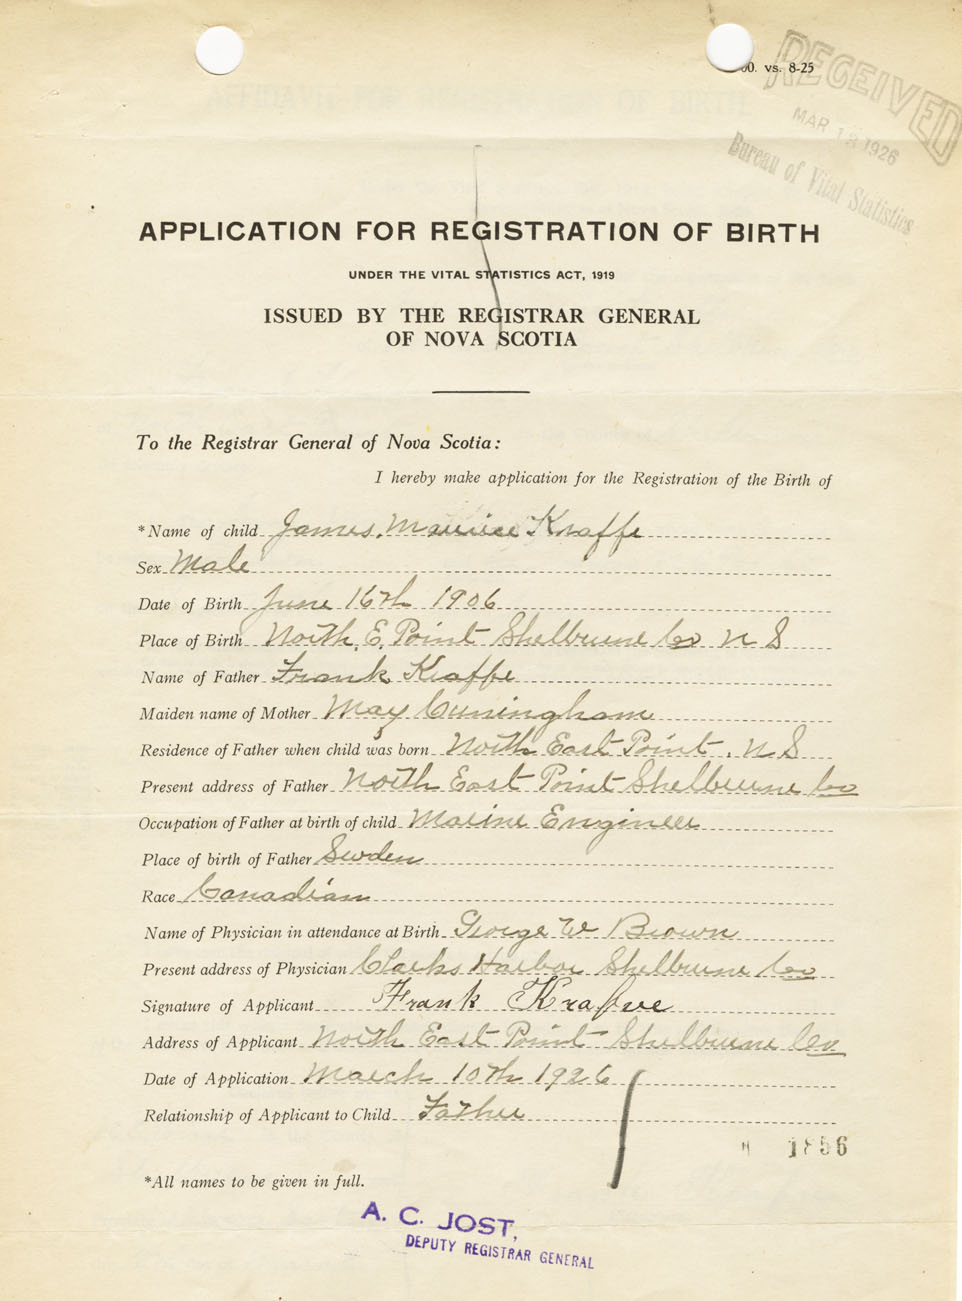 00. vs. 8-25
RECEIVED
MAR 1 1926
Bureau of Vital Statistics
APPLICATION FOR REGISTRATION OF BIRTH
UNDER THE VITAL STATISTICS ACT, 1919
ISSUED BY THE REGISTRAR GENERAL
OF NOVA SCOTIA
To the Registrar General of Nova Scotia:
I hereby make application for the Registration of the Birth of
*Name of child James. Maurice Kraffe
Sex Male
Date of Birth June 16th 1906
Place of Birth North, E, Point Shelburne Co N S
Name of Father Frank Kraffe
Maiden name of Mother May Cuningham
Residence of Father when child was born North East Point. N S
Present address of Father North East Point Shelburne Co
Occupation of Father at birth of child Marine Engineer
Place of birth of Father Sweden
Race Canadian
Name of Physician in attendance at Birth George W Brown
Present address of Physician Clarks Harbor Shelburne Co
Signature of Applicant Frank Krafve
Address of Applicant North East Point Shelburne Co
Date of Application March 10th 1926
Relationship of Applicant to Child Father
1856
*All names to be given in full.
A. C. JOST,
DEPUTY REGISTRAR GENERAL